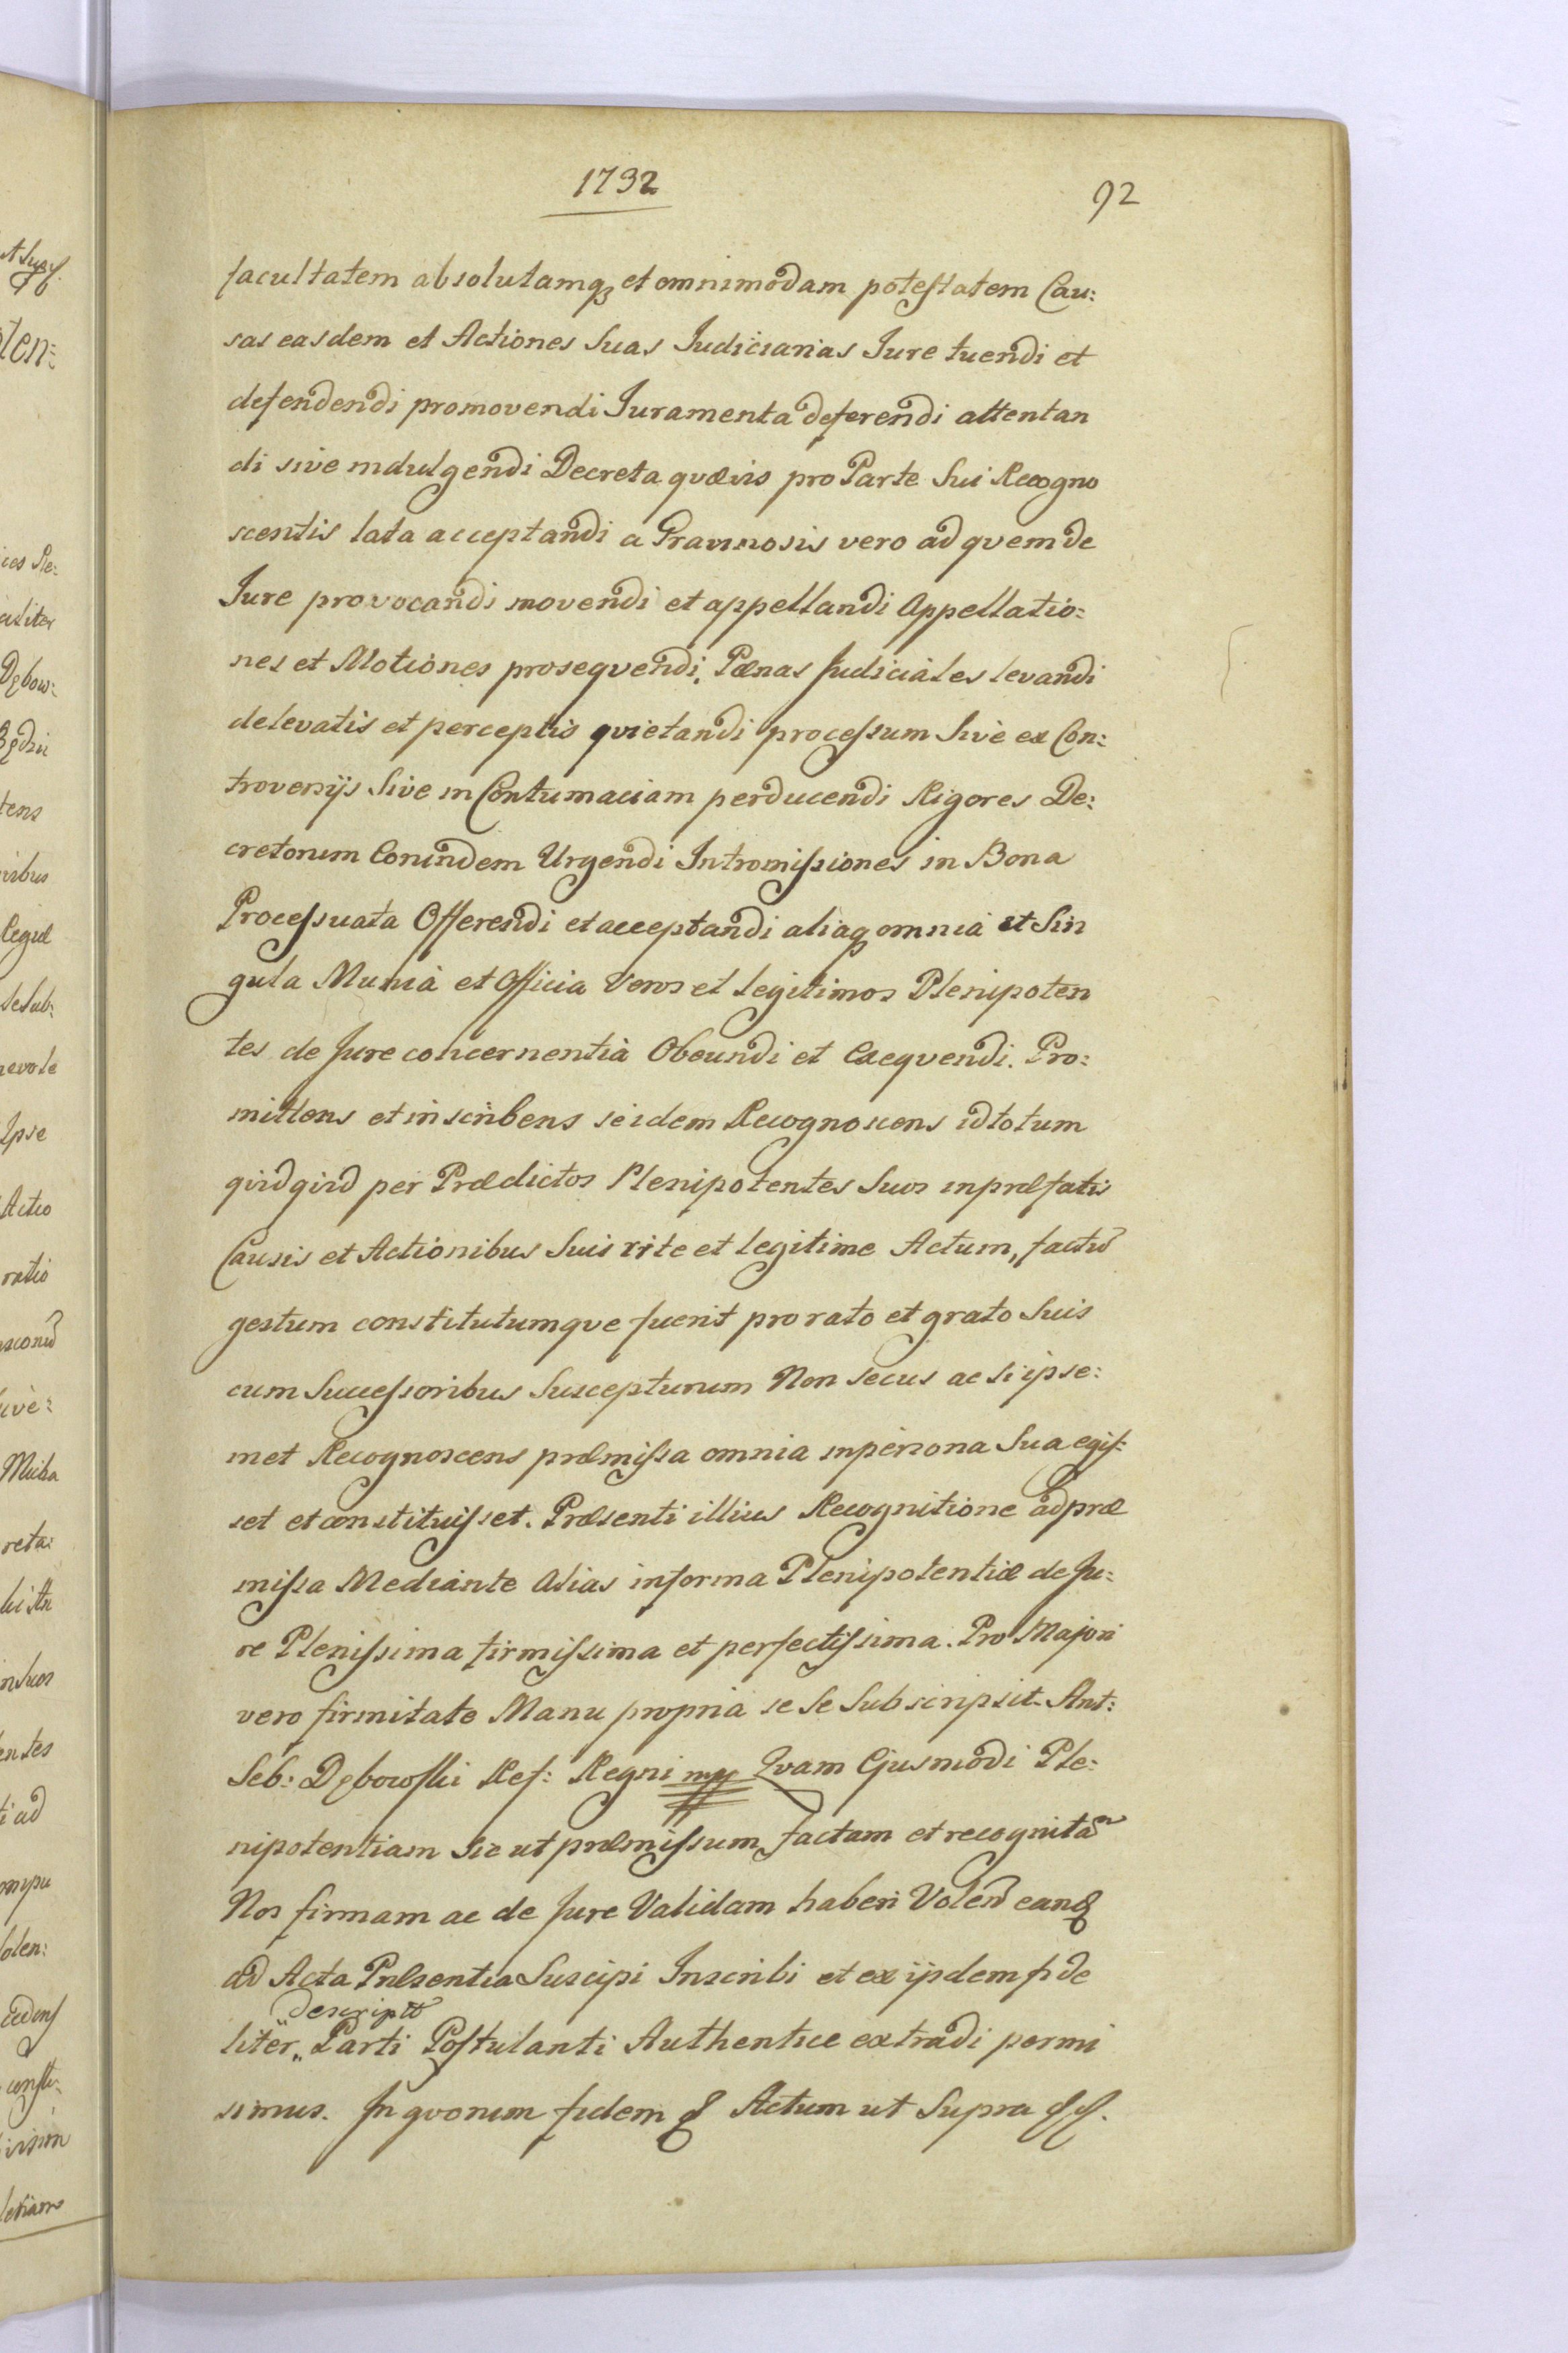 1732
92
facultatem absolutamq3 et omnimodam potestatem Cau:
sas easdem et Actiones Suas Judiciarias Jure tuendi et
defendendi promovendi Juramenta deferendi attentan
di sive indulgendi Decreta qvævis pro Parte Sui Recogno
scentis lata acceptandi a Gravinosis vero ad qvem de
Jure provocandi movendi et appellandi Appellatio:
nes et Motiones proseqvendi, Pænas Judiciales levandi
delevatis et perceptis qvietandi processum Sive ex Con:
troversijs Sive in Contumaciam perducendi Rigores De:
cretorum Eorundem Urgendi Intromissiones in Bona
Processuata Offerendi et acceptandi aliaq3 omnia et Sin
gula Munia et Officia Veros et legitimos Plenipoten
tes de Jure concernentia Obeundi et Exeqvendi. Pro:
mittens et inscribens se idem Recognoscens id totum
qvidqvid per Prædictos Plenipotentes Suos in præfatis
Causis et Actionibus Suis rite et legitime Actum, factũ
gestum constitutumqve fuerit pro rato et grato Suis
cum Successoribus Suscepturum Non secus ac si ipse:
met Recognoscens præmissa omnia in persona Sua egis:
set et constituisset. Præsenti illius Recognitione ad præ
missa Mediante Alias in forma Plenipotentiæ de Ju:
re Plenissima firmissima et perfectissima. Pro Majori
vero firmitate Manu propria se Se Subscripsit. Ant:
Seb: Dębowski Ref: Regni mp Qvam Ejusmodi Ple:
nipotentiam Sic ut præmissum factam et recognitã
Nos firmam ac de Jure Validam haberi Volen̄ eanq3
ad Acta Præsentia Suscipi Inscribi et ex ijsdem fide
Descriptã
liter,, Parti Postulanti Authentice extradi permi
simus. In qvorum fidem & Actum ut Supra